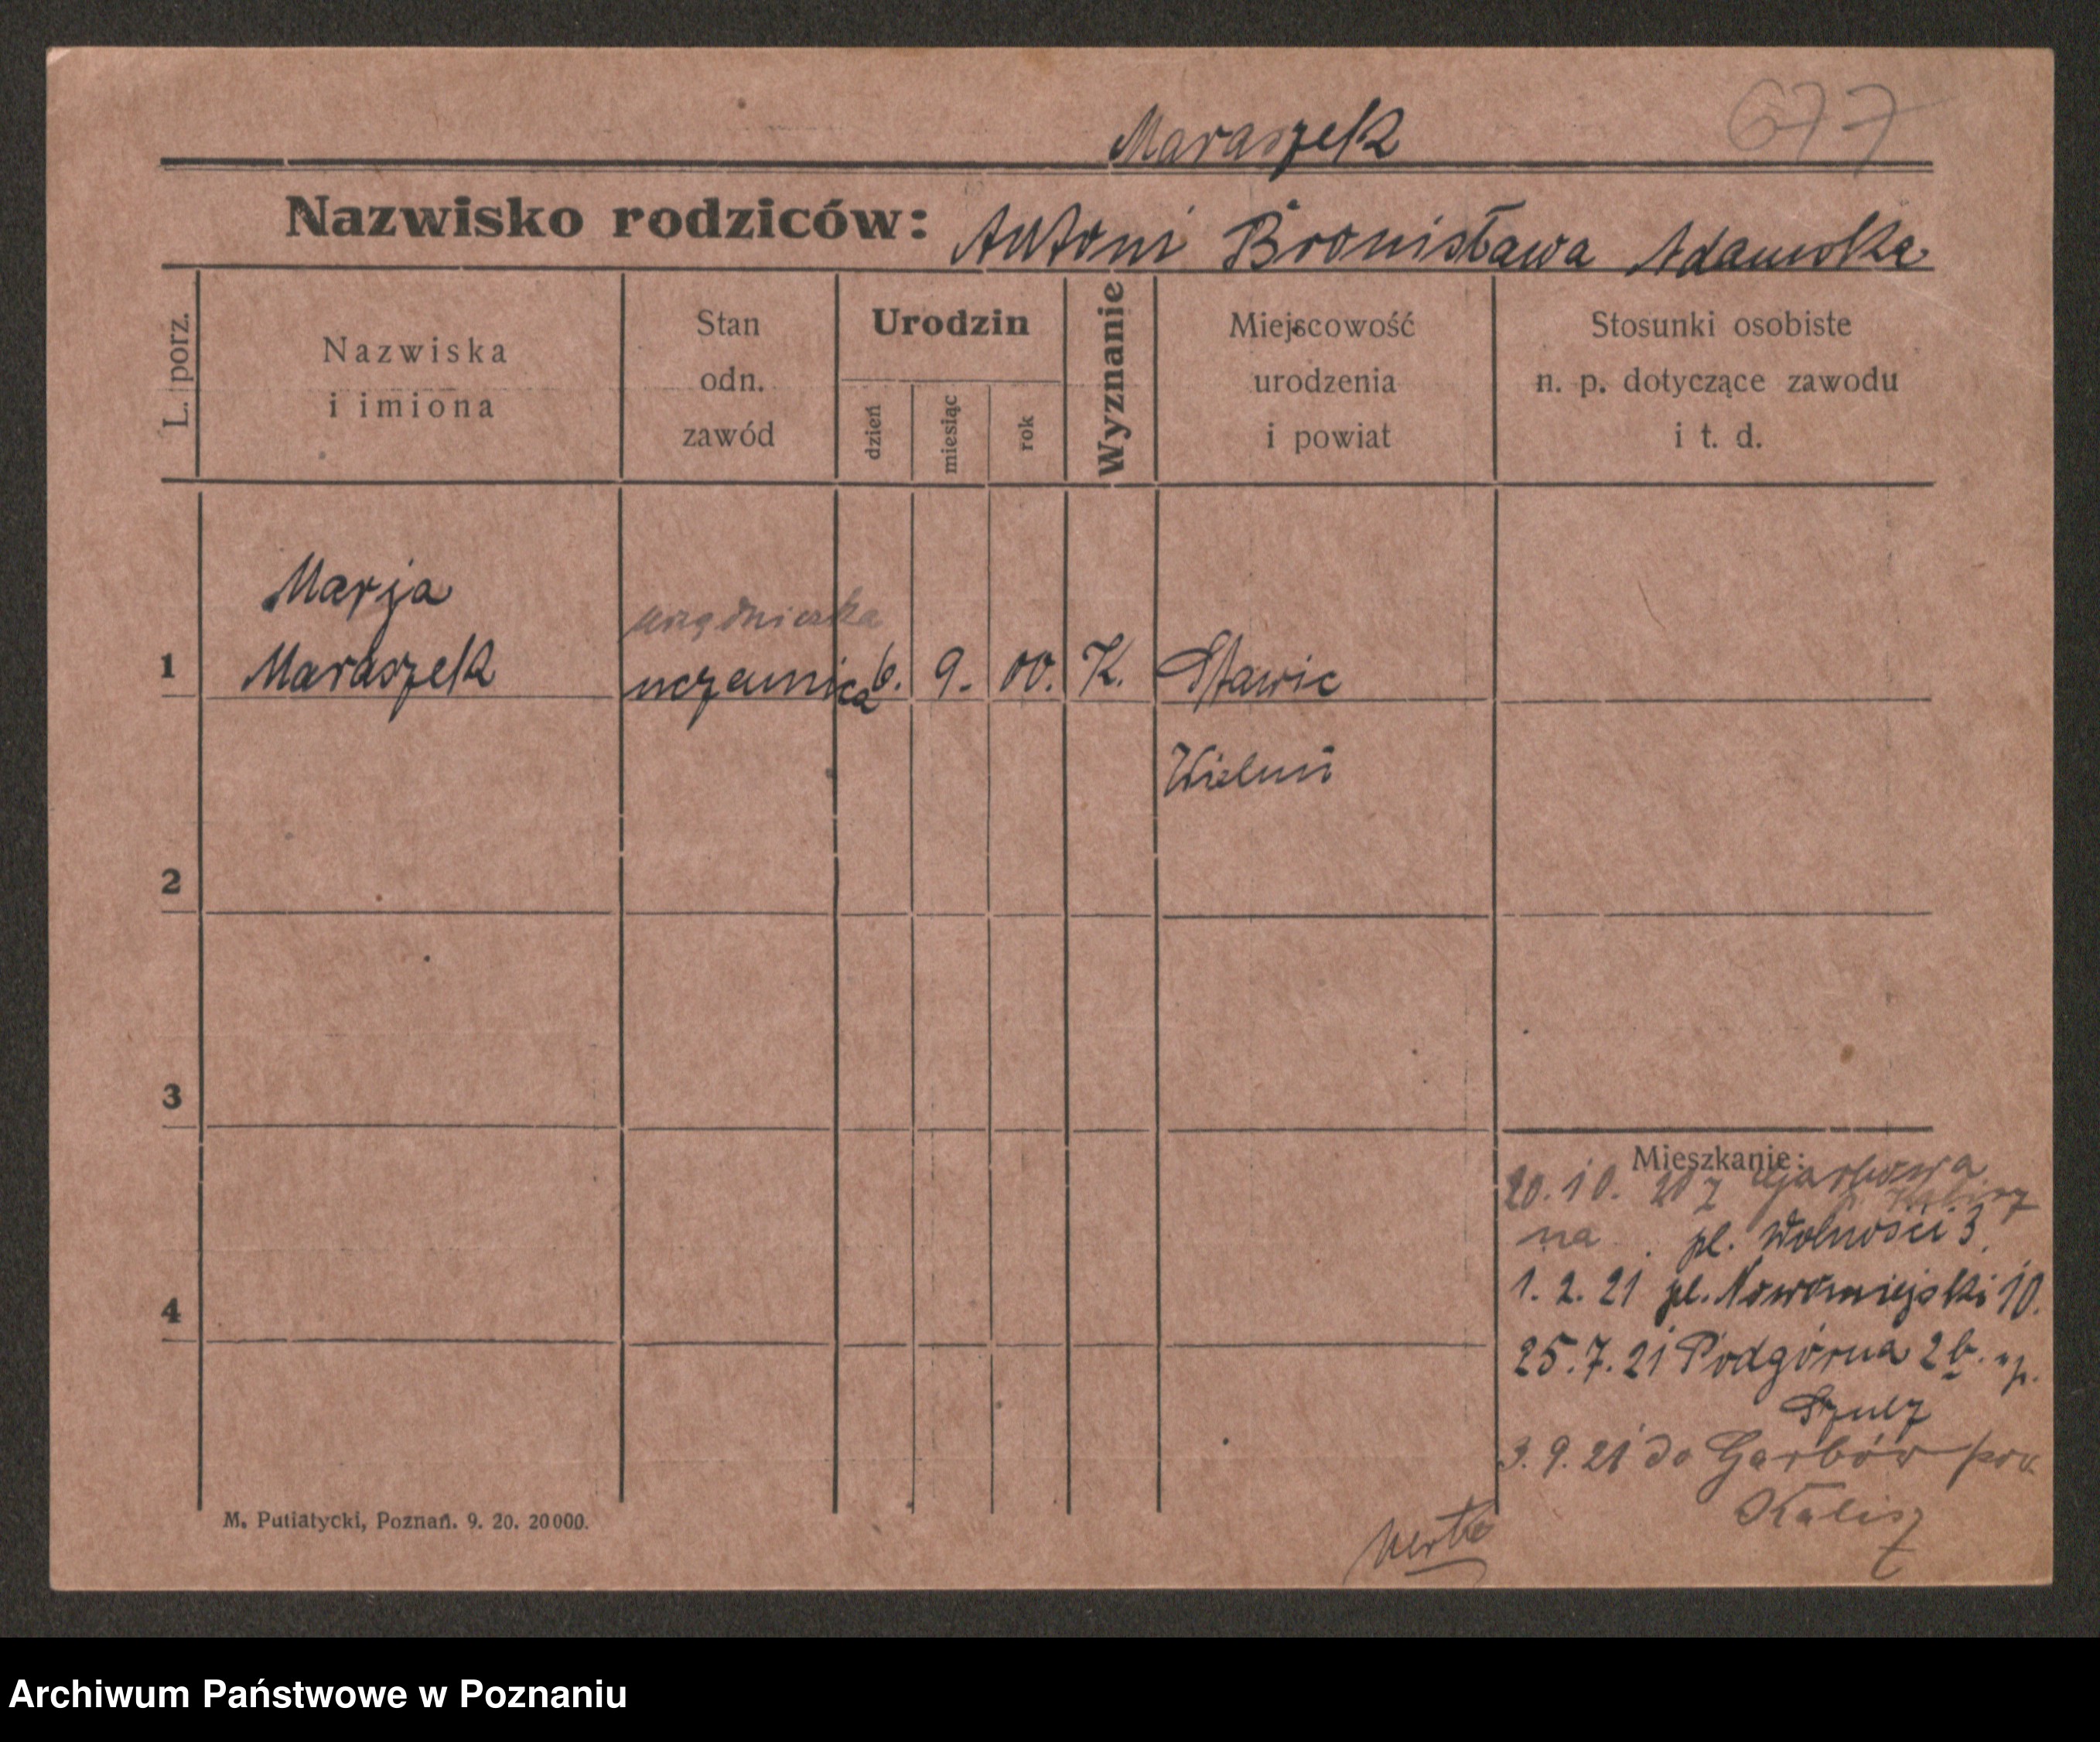 677
Maraszek
Nazwisko rodziców: Antoni Bronisława Adamska
L. porz.
Nazwiska
i imiona
Stan
odn.
zawód
Urodzin
dzień
miesiąc
rok
Wyznanie
Miejscowość
urodzenia
i powiat
Stosunki osobiste
n. p. dotyczące zawodu
i t. d.
Marja
urzędniczka
1 Maraszek uczennica 6. 9. 00. K. Stawic
Wieluń
2
3
Mieszkanie:
20.10. 20 z Garbowa
na pl. Wolności 3.
1. 2. 21 pl. Nowomiejski 10.
4
25.7.21 Podgórna 2b. p.
Szulz
3. 9. 21 do Garbów pow.
Kalisz
verte
M. Putiatycki, Poznań. 9. 20. 20000.
Archiwum Państwowe w Poznaniu